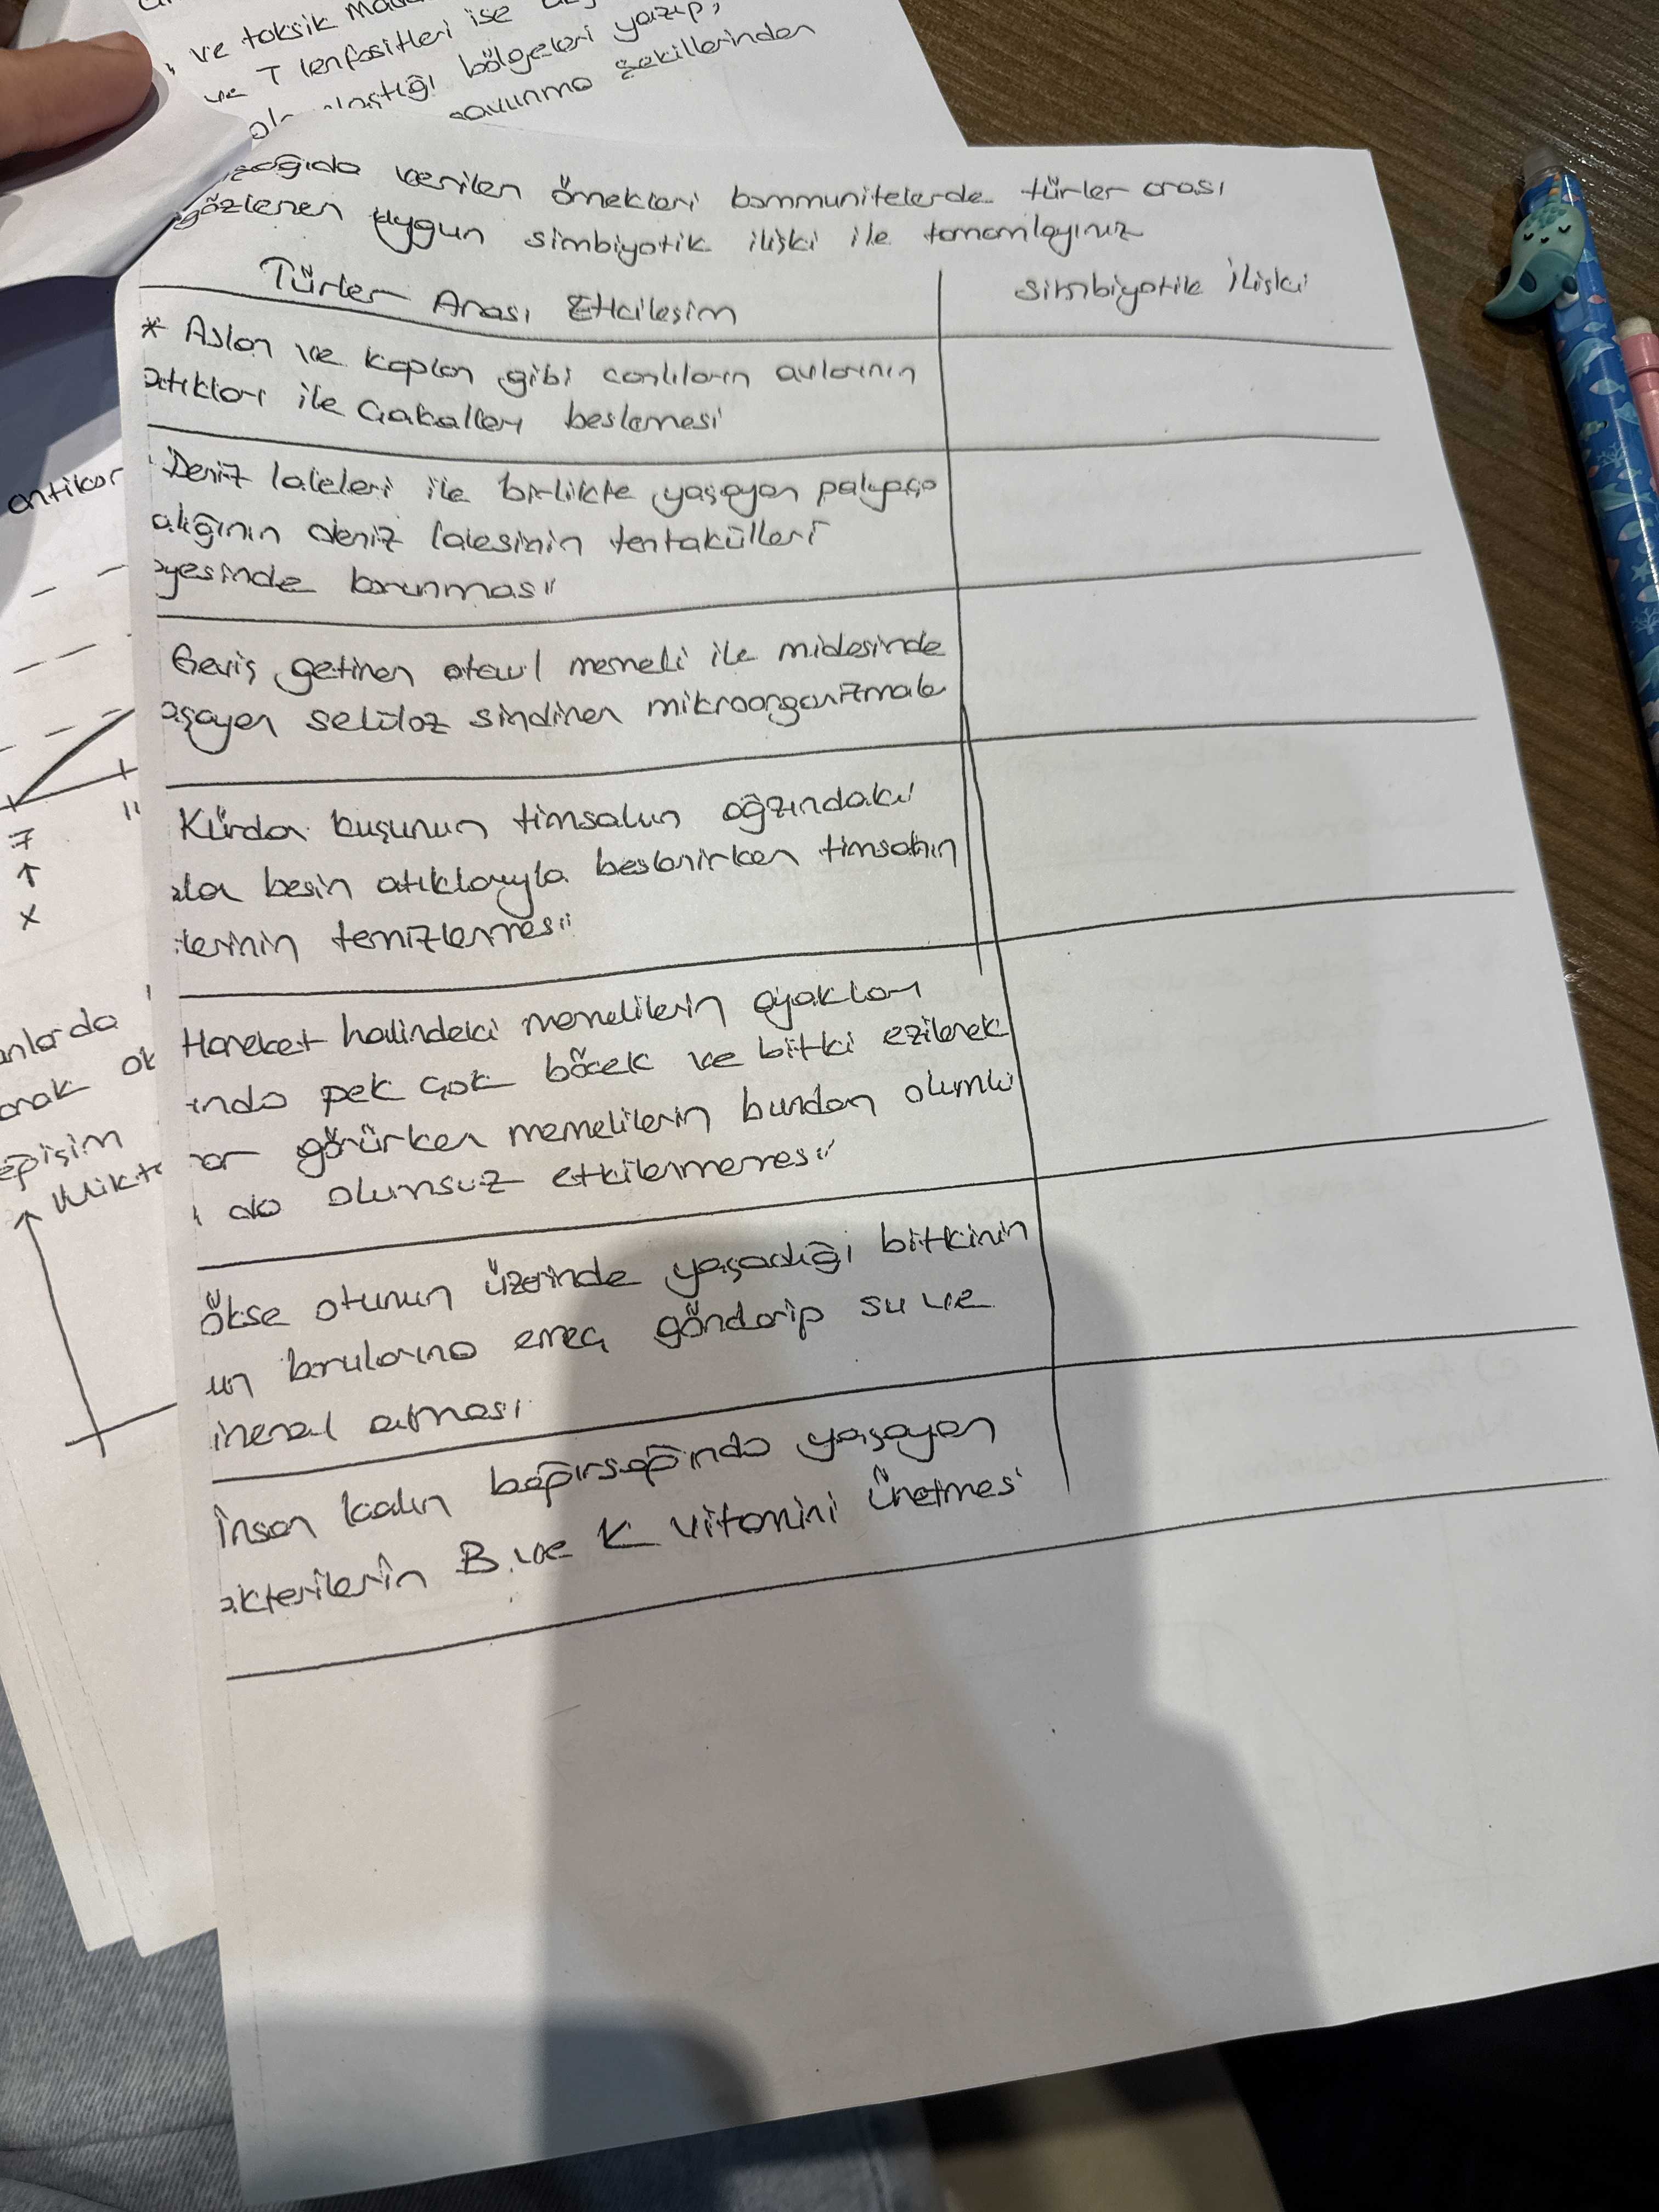 ve toksik
ve T lenfositleri ise
bölgeleri yazıp,
savunma şekillerinden
verilen örnekleri kommunitelerde türler arası
gözlenen uygun simbiyotik ilişki ile tamamlayınız
Türler Arası Etkileşim
simbiyotik İlişki
* Aslan ve kaplan gibi canlıların avlarının
atıkları ile Çakalların beslemesi
Deniz laleleri ile birlikte yaşayan palyaço
alığının deniz lalesinin tentakülleri
ayesinde korunması
Geviş getiren otçul memeli ile midesinde
aşayan selüloz sindiren mikroorganizmalar
Kürdan kuşunun timsahın ağzındaki
besin atıklarıyla beslenirken timsahın
lerinin temizlemesi
Hareket halindeki memelilerin ayakları
ında pek çok böcek ve bitki ezilerek
ar görürken memelilerin bundan olumlu
da olumsuz etkilenmemesi
Ökse otunun üzerinde yaşadığı bitkinin
un borularına emeç gönderip su ve
ineral alması
İnsan kalın bağırsağında yaşayan
akterilerin B ve K vitamini üretmesi
antikor
7
11
↑
x
anlarda
arak